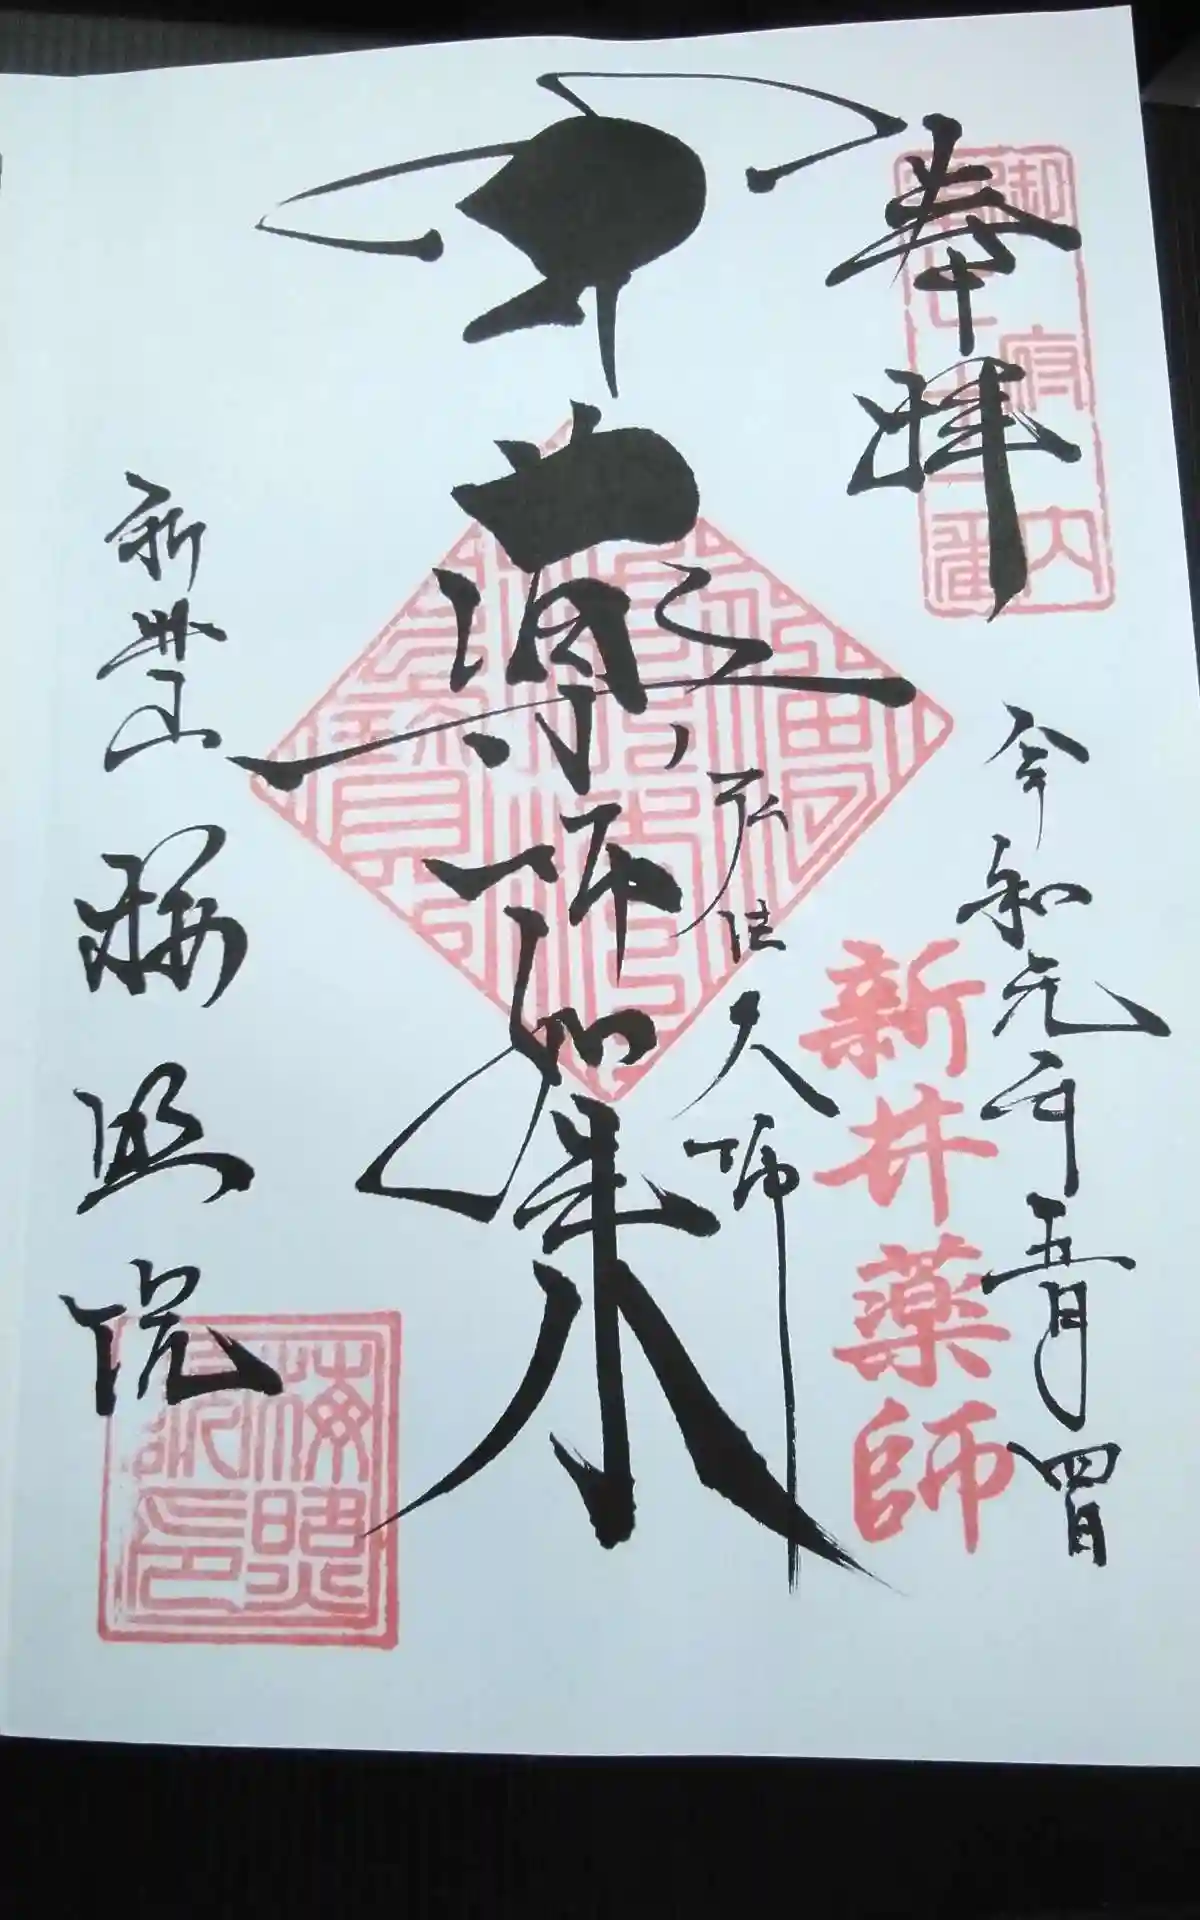 奉拝
御府内
第七十一番
令和元年五月四日
新井薬師
弘法大師
薬師如来
新井山
梅照院
梅照院印